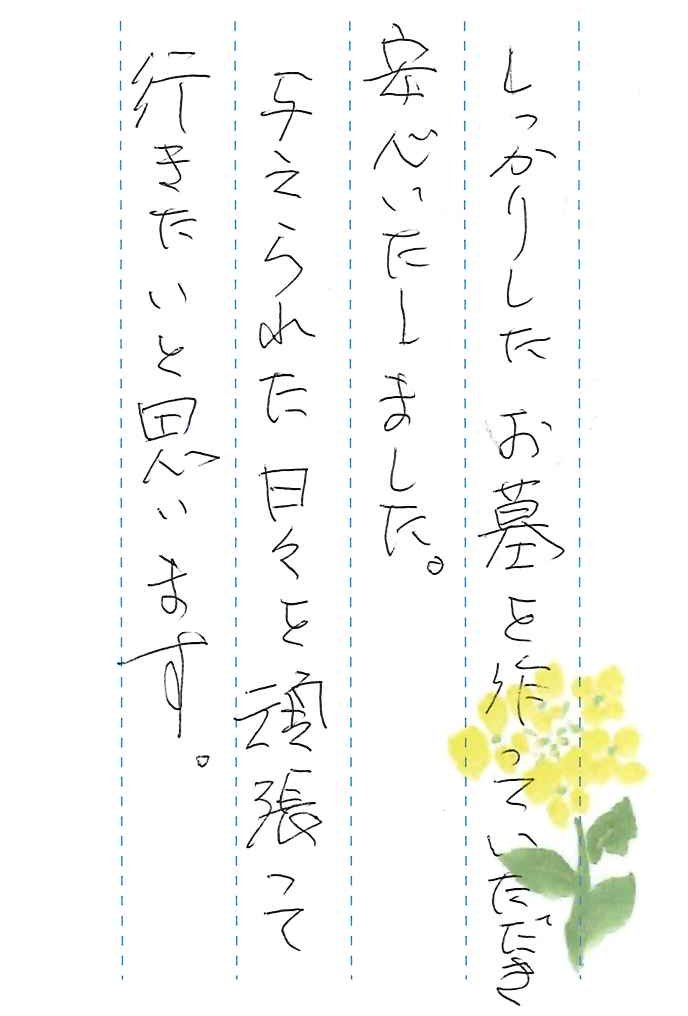 しっかりしたお墓を作っていただき
安心いたしました。
与えられた日々を頑張って
行きたいと思います。